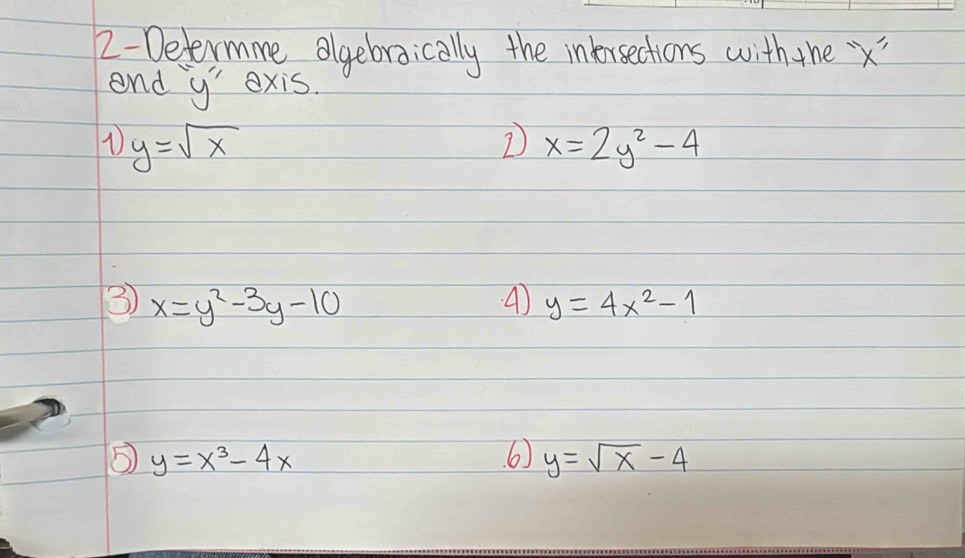 2-Determine algebraically the intersections with the "x"
and "y" axis.
1) y=√x
2) x=2y²-4
3) x=y²-3y-10
4) y=4x²-1
5) y=x³-4x
6) y=√x-4